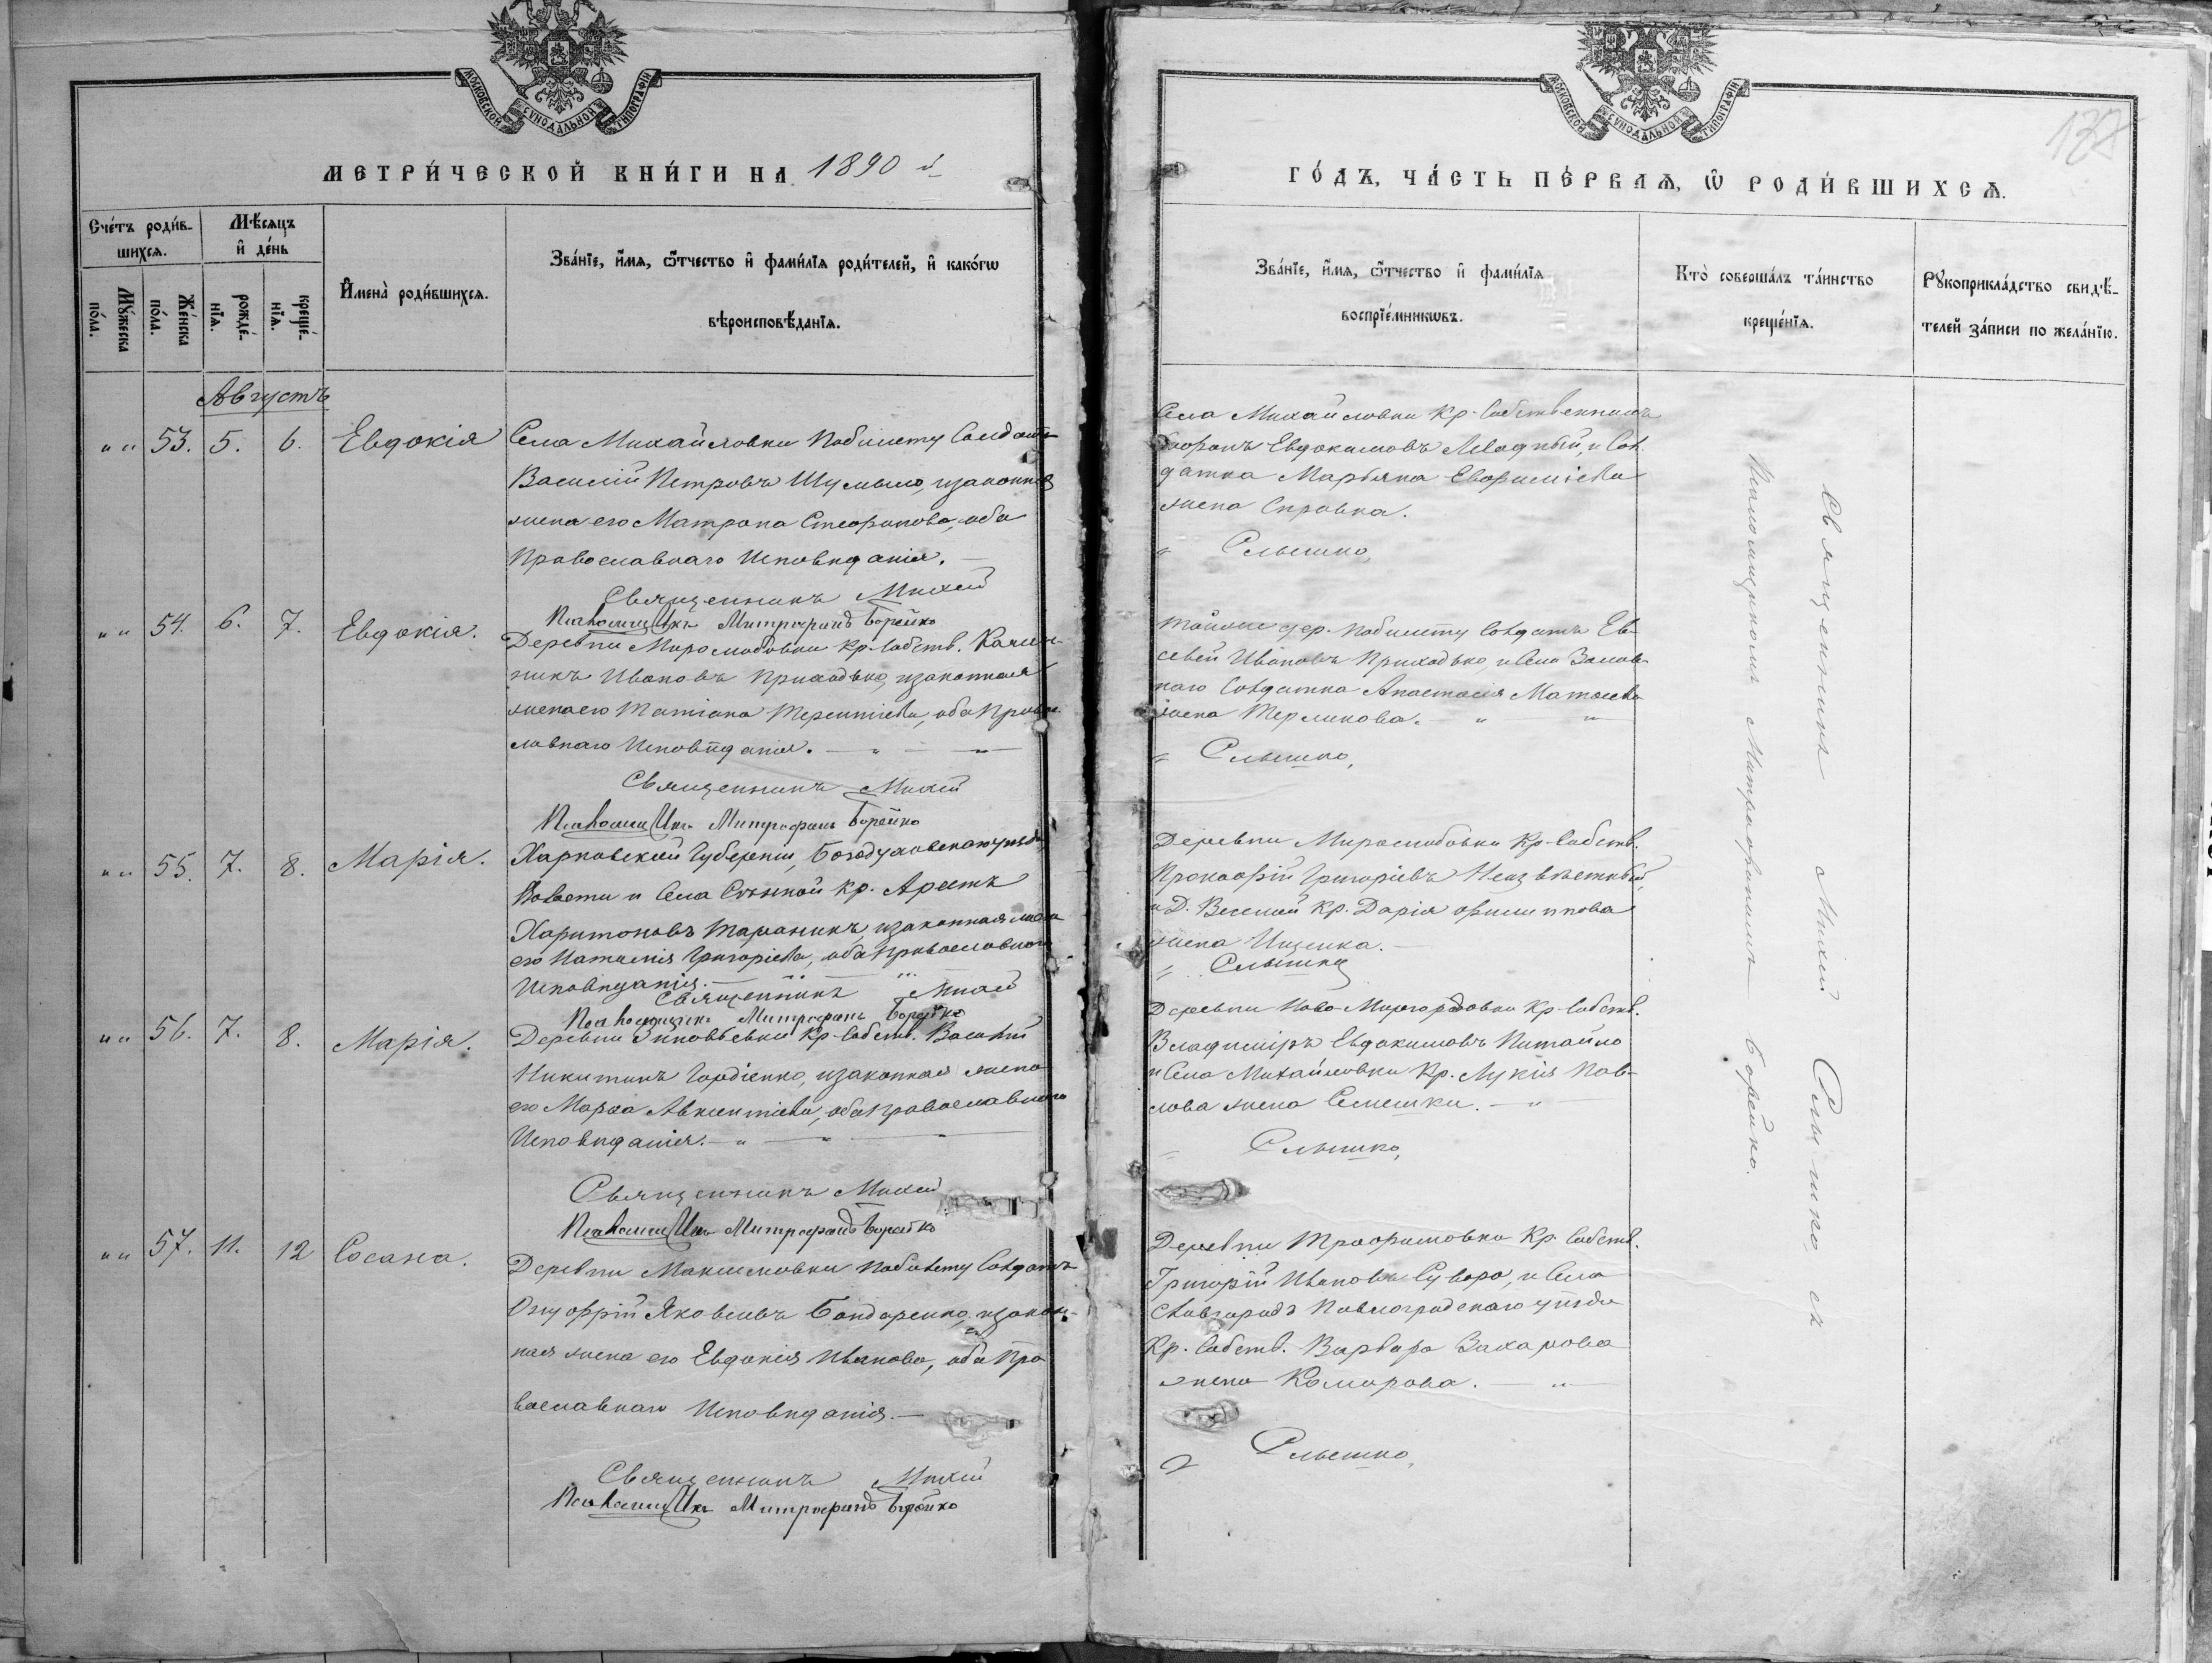 МОСКОВСКОЙ СУНОДАЛЬНОЙ ТИПОГРАФІИ
МЕТРИ́ЧЕСКОЙ КНИ́ГИ НА 1890 й
Сче́тъ роди́в-
шихсѧ.
Мѣ́сѧцъ
и҆ де́нь
Мꙋ́жеска
по́ла.
Же́нска
по́ла.
рожде́-
нїѧ.
креще́-
нїѧ.
И҆мена̀ роди́вшихсѧ.
Зва́нїе, и҆́мѧ, ѻ҆́тчество и҆ фами́лїѧ роди́телей, и҆ како́гѡ
вѣроисповѣ́данїѧ.
Августъ
" " 53. 5. 6. Евдокія
Села Михайловки побилету Солдатъ
Василій Петровъ Шумыло, изаконная
жена его Матрона Стефанова, оба
Православнаго Исповѣданія.
Священникъ Михей
Псаломщикъ Митрофанъ Борейко
" " 54. 6. 7. Евдокія.
Деревни Миролюбовки кр. Собств. Калин-
никъ Ивановъ Приходько, изаконная
жена его Татіана Терентіева, оба Право-
славнаго Исповѣданія.
Священникъ Михей
Псаломщикъ Митрофанъ Борейко
" " 55. 7. 8. Марія.
Харьковской Губерніи, Богодуховскаго уѣзда,
Волости и Села Сѣнной кр.
Харитоновъ изаконная жена
его Наталія Григоріева, оба православнаго
Исповѣданія.
Священникъ Михей
Псаломщикъ Митрофанъ Борейко
" " 56. 7. 8. Марія.
Деревни Зиновьевки Кр. Собств. Василій
Никитинъ Гордіенко, изаконная жена
его Марѳа Авксентіева, оба православнаго
Исповѣданія.
Священникъ Михей
Псаломщикъ Митрофанъ Борейко
" " 57. 11. 12 Сосана.
Деревни Максимовки побилету Солдатъ
Онуфрій Яковлевъ Бондаренко, изакон-
ная жена его Евдокія Иванова, оба Пра-
вославнаго Исповѣданія.
Священникъ Михей
Псаломщикъ Митрофанъ Борейко
МОСКОВСКОЙ СУНОДАЛЬНОЙ ТИПОГРАФІИ
ГО́ДЪ, ЧА́СТЬ ПЕ́РВАѦ, Ѡ҆ РОДИ́ВШИХСѦ.
Зва́нїе, и҆́мѧ, ѻ҆́тчество и҆ фами́лїѧ
воспрїе́мникѡвъ.
Кто̀ соверша́лъ та́инство
креще́нїѧ.
Рꙋкоприкла́дство свидѣ́-
телей за́писи по жела́нїю.
Села Михайловки Кр. Собственникъ
Евдокимовъ и Сол-
датка Марьяна Евфиміева
жена
Слышко,
Тойже дер. побилету Солдатъ Ев-
севій Ивановъ Приходько, и Села
Солдатка Анастасія Матвеева
жена
Слышко,
Деревни Миролюбовки Кр. Собств.
Прокофій Григоріевъ Неизвѣстный,
и Д. Веселой Кр. Дарія Филиппова
жена Ищенка.
Слышко
Деревни Ново-Миргородовки Кр. Собств.
Владиміръ Евдокимовъ
и Села Михайловки Кр. Лукія Пав-
лова жена Семешки.
Слышко,
Деревни Трофимовки Кр. Собств.
Григорій Ивановъ Суворо, и Села
Славгорода Павлоградскаго уѣзда
Кр. Собств. Варвара Захарова
жена Комарова.
Слышко,
Священникъ Михей Слышко, съ
Псаломщикомъ Митрофаномъ Борейко.